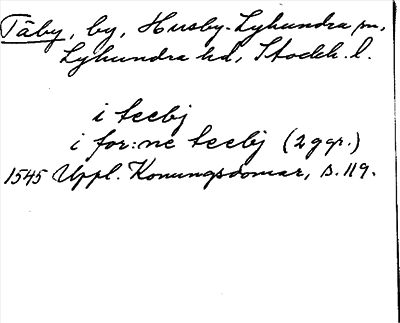 Täby, by, Husby-Lyhundra sn,
Lyhundra hd, Stockh. l.
i teebj
i for:ne teebj (2 ggr.)
1545 Uppl. Konungsdomar, s. 119.